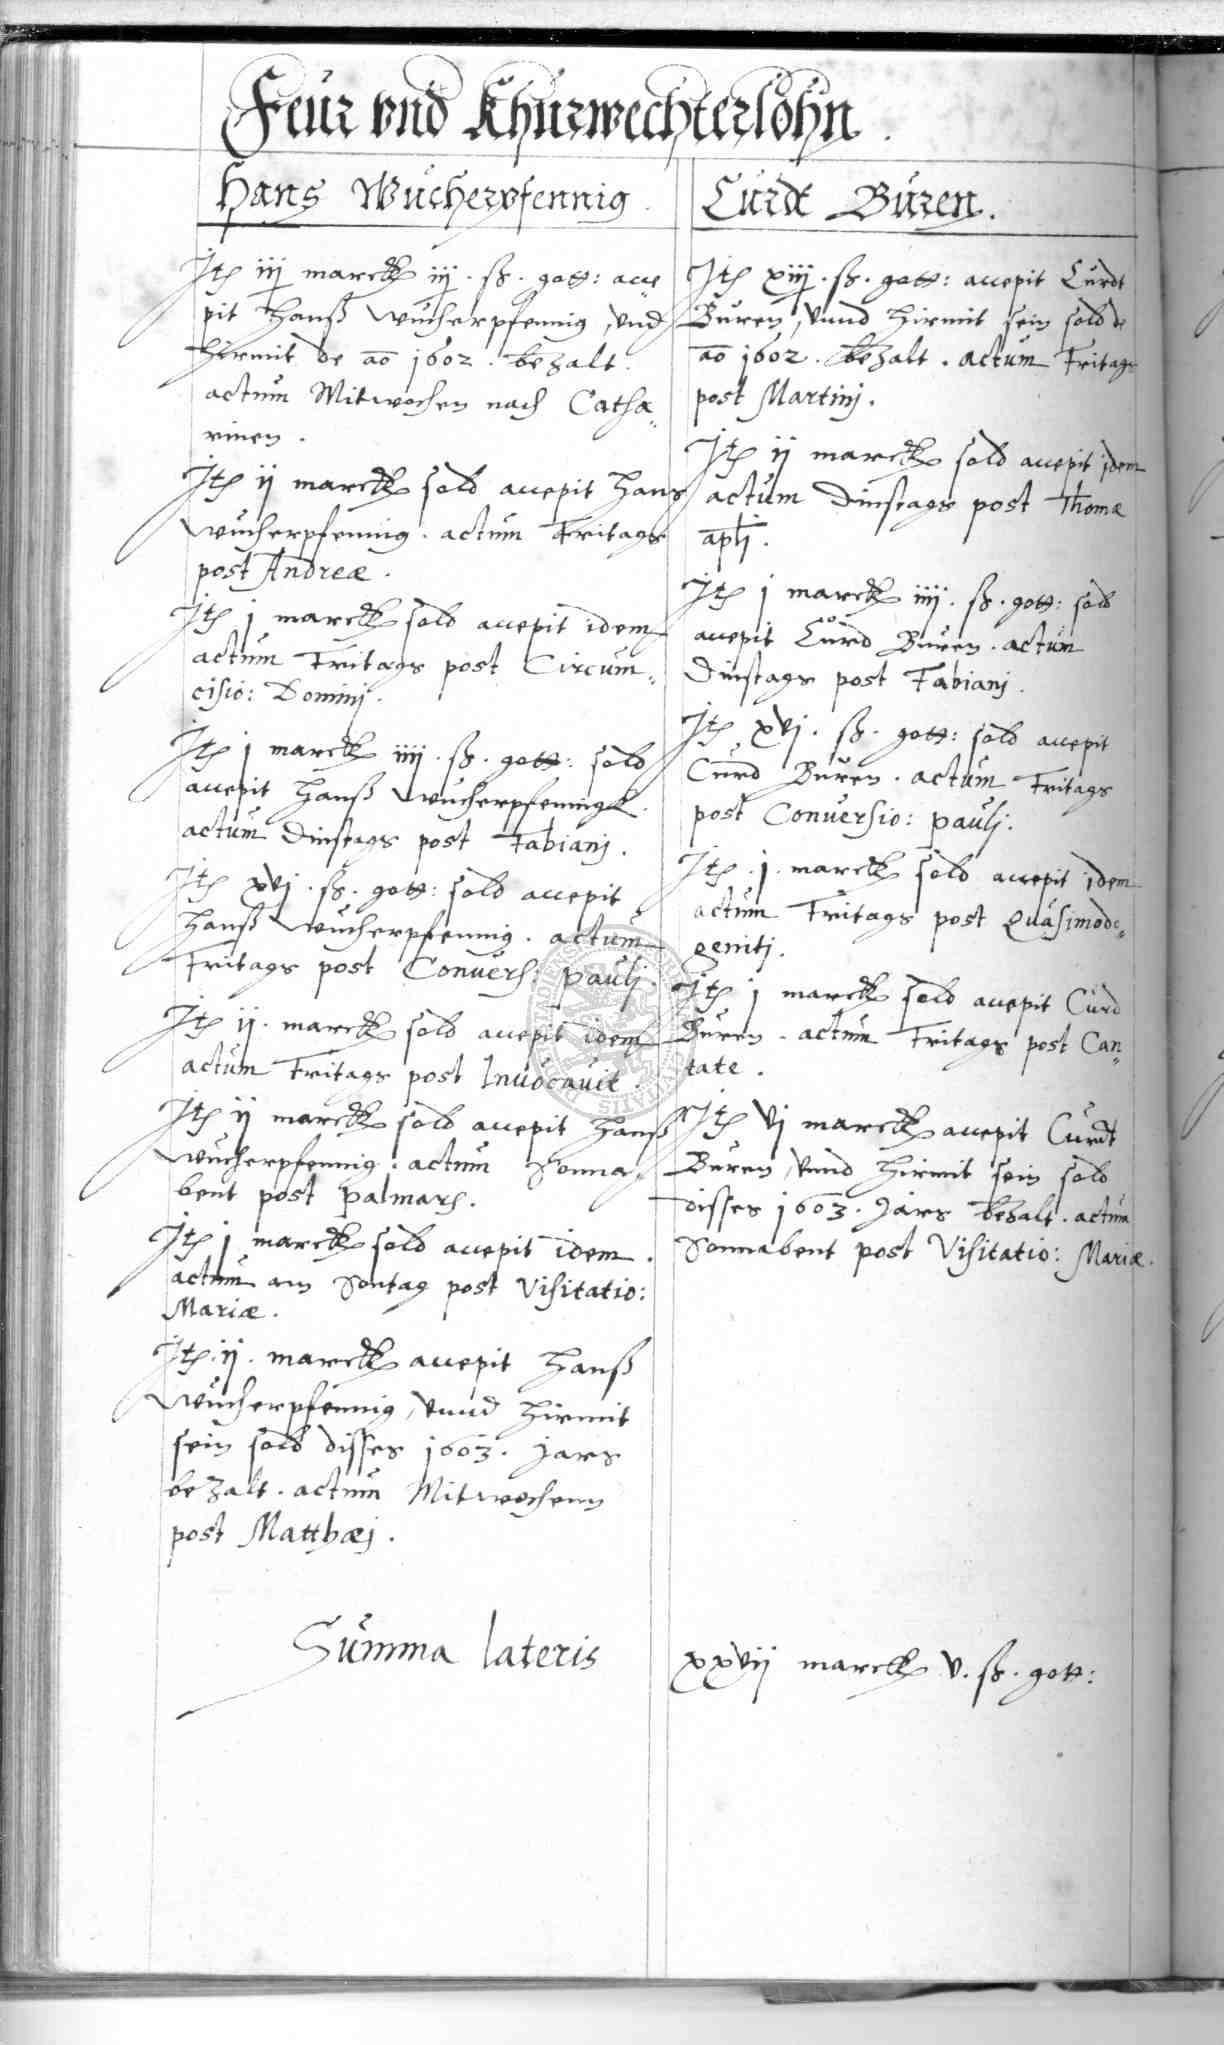 Feur vnd Khurwechterlohn.
Hans Wucherpfennig.
Jtem iij marck iij. ß. gott: acce„
pit Hanß Wucherpfennig, vnd
hirmit de ao 1602. bezalt.
actum Mitwochen nach Catha„
rinen.
Jtem ij marck sold accepit Hans
Wucherpfennig. actum Fritags
post Andreæ.
Jtem j marck sold accepit idem
actum Fritags post Circum„
cisio: Dominj.
Jtem j marck iiij. ß. gott: sold
accepit Hanß Wucherpfennigk.
actum Dinstags post Fabianj.
Jtem xvj. ß. gott: sold accepit
Hanß Wucherpfennig. actum
Fritags post Convers: paulj.
Jtem ij. marck sold accepit idem
actum Fritags post Inuocauit.
Jtem ij marck sold accepit Hanß
Wucherpfennig. actum Sonna„
bent post palmarum.
Jtem j marck sold accepit idem.
actum am Sontag post Visitatio:
Mariæ.
Jtem ij. marck accepit Hanß
Wucherpfennig, vnnd hirmit
sein sold disses 1603. Jars
bezalt. actum Mitwochenn
post Matthæj.
Curdt Buren.
Jtem xiij. ß. gott: accepit Curdt
Buren, vnnd hirmit sein sold de
ao 1602. bezalt. actum Fritags
post Martinj.
Jtem ij marck sold accepit idem
actum Dinstags post Thomæ
apli.
Jtem j marck iiij. ß. gott: sold
accepit Curd Buren. actum
Dinstags post Fabianj.
Jtem xvj. ß. gott: sold accepit
Curd Buren. actum Fritags
post Conuersio: paulj.
Jtem .j. marck sold accepit idem
actum Fritags post Quasimodo„
genitj.
Jtem j marck sold accepit Curd
Buren. actum Fritags post Can„
tate.
Jtem vj marck accepit Curdt
Buren, vnnd hirmit sein sold
disses 1603. Jars bezalt. actum
Sonnabent post Visitatio: Mariæ.
Summa lateris xxvij marck v. ß. gott: